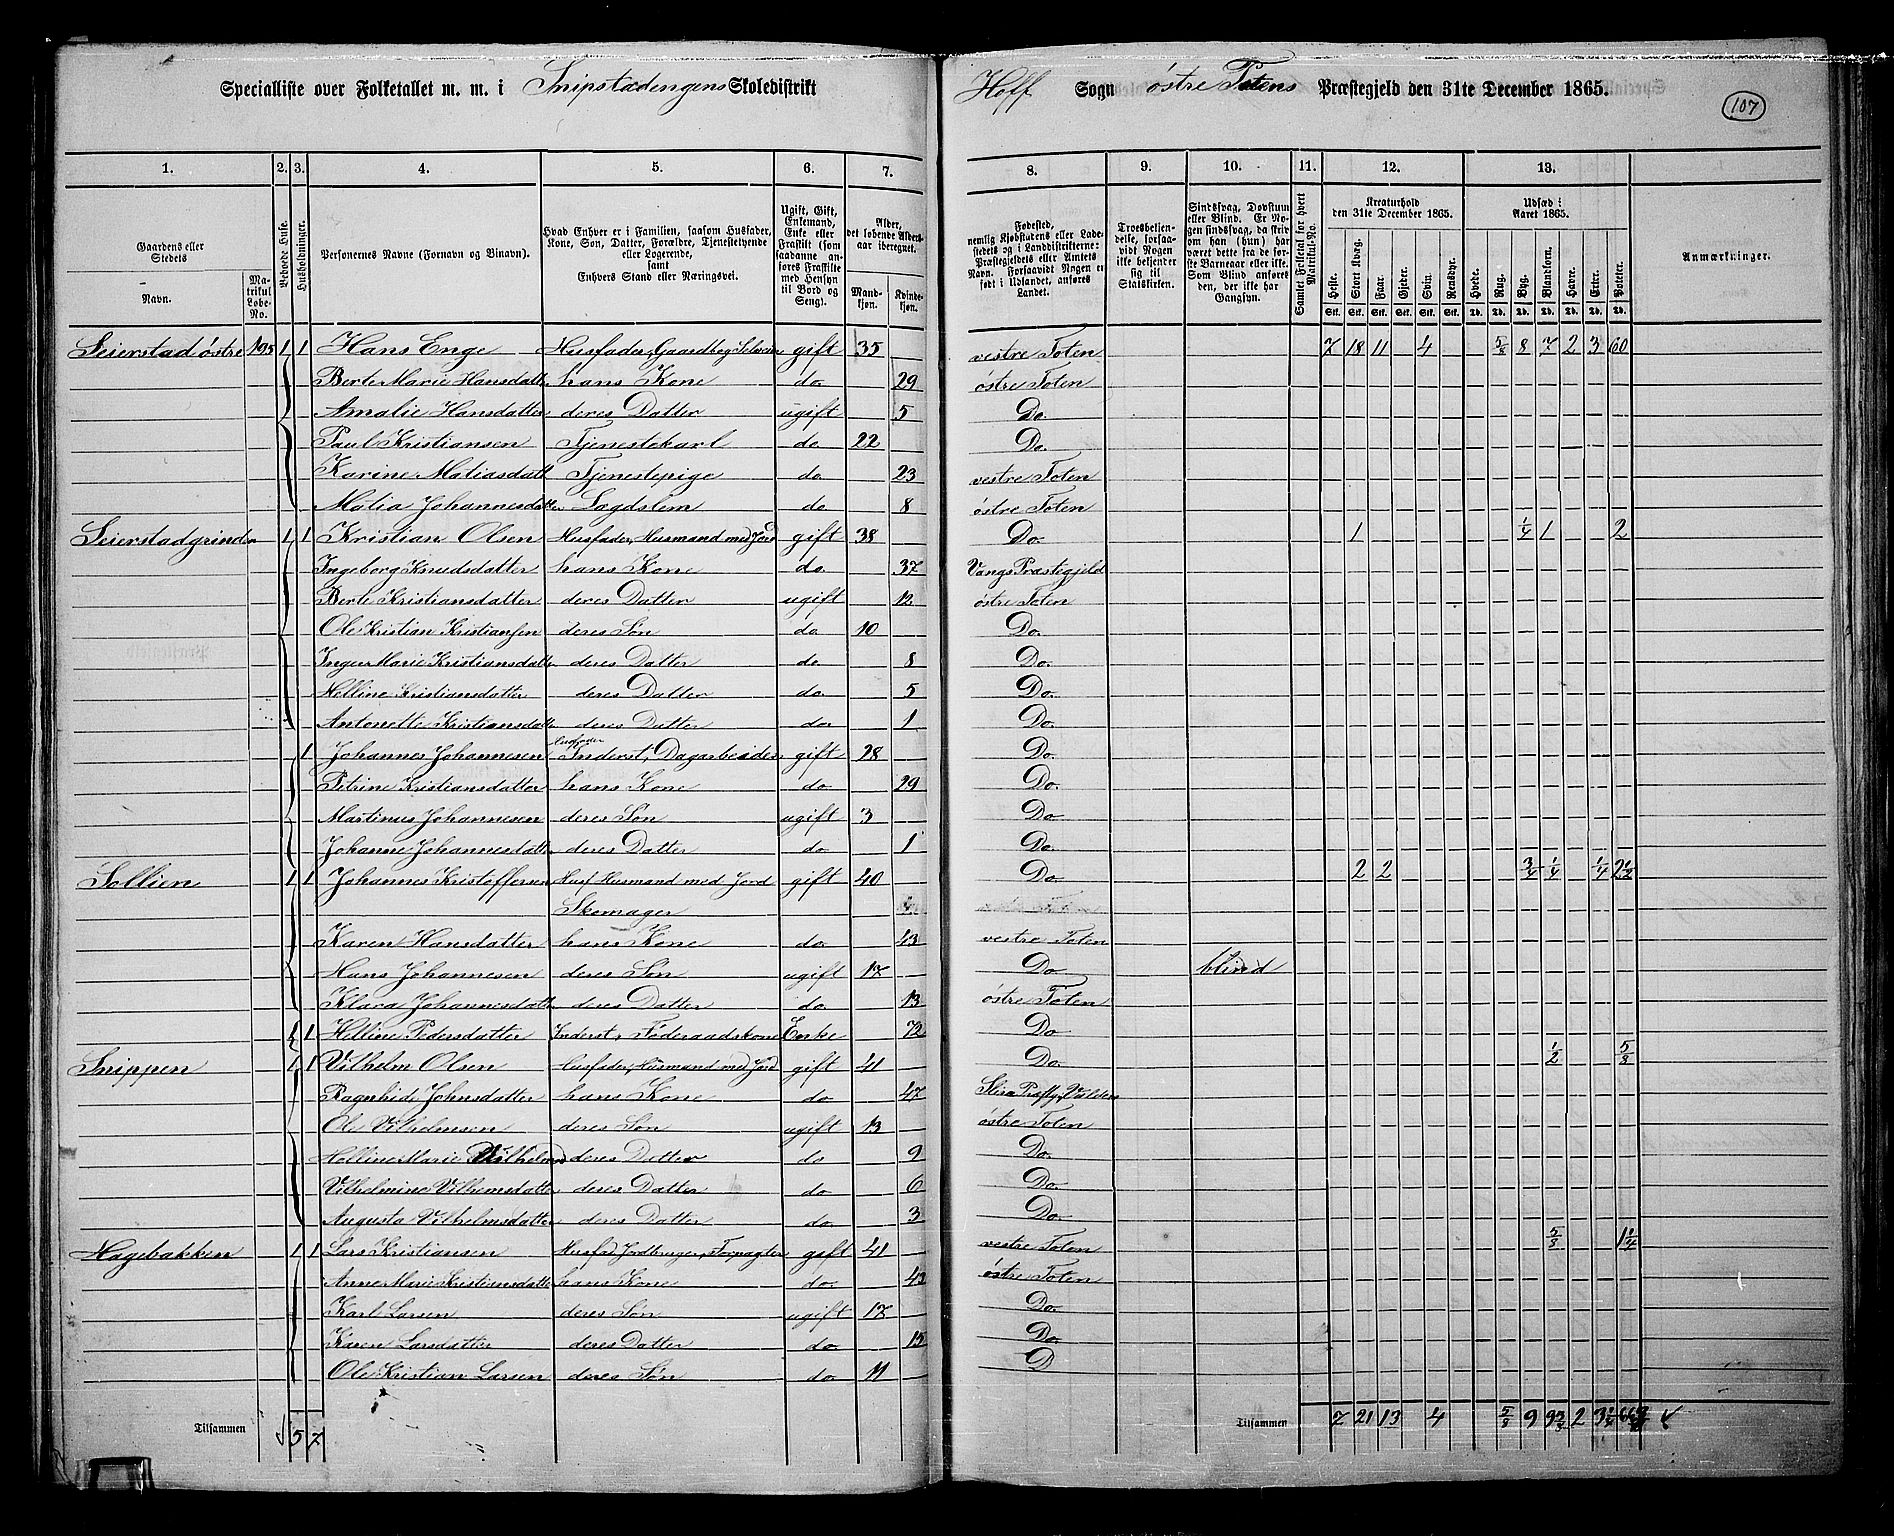 Specialliste over Folketallet m. m. i Snipstadengens Skoledistrikt
Hoff Sogn østre Totens Præstegjeld den 31te December 1865.
107
1. 2. 3. 4. 5. 6. 7. 8. 9. 10. 11. 12. 13.
Gaardens eller Stedets Navn.
Matrikul Løbe-No.
Beboede Huse.
Husholdninger.
Personernes Navne (Fornavn og Binavn).
Hvad Enhver er i Familien, saasom Husfader, Kone, Søn, Datter, Forældre, Tjenestetyende eller Logerende, samt Enhvers Stand eller Næringsvei.
Ugift, Gift, Enkemand, Enke eller Fraskilt (som saadanne anføres Fraskilte med Hensyn til Bord og Seng).
Alder, det løbende Aldersaar iberegnet.
Mandkjøn. Kvindekjøn.
Fødested, nemlig Kjøbstadens eller Ladestedets og i Landdistrikterne: Præstegjeldets eller Amtets Navn. Forsaavidt Nogen er født i Udlandet, anføres Landet.
Troesbekjendelse, forsaavidt Nogen ikke bekjender sig til Statskirken.
Sindssvag, Døvstum eller Blind. Er Nogen sindssvag, da skriv om han (hun) har været dette fra de første Barneaar eller ikke. Som Blind anføres den, der ikke har Gangsyn.
Samlet Folketal for hvert Matrikul-No.
Kreaturhold den 31te December 1865.
Heste. Stort Kvæg. Faar. Gjeder. Svin. Rensdyr.
Udsæd i Aaret 1865.
Hvede. Rug. Byg. Blandkorn. Havre. Erter. Poteter.
Anmærkninger.
Seierstad østre 195 1 1 Hans Enge Husfader, Gaardbg Selveier gift 35 vestre Toten 7 18 11 4 5/8 8 7 2 3 60
Berte Marie Hansdatter hans Kone do 29 østre Toten
Amalie Hansdatter deres Datter ugift 5 Do.
Paul Kristiansen Tjenestekarl do 22 Do.
Karine Matiasdatt Tjenestepige do 23 vestre Toten
Matia Johannesdatter Lægdslem do 8 østre Toten
Seierstadgrinden 1 1 Kristian Olsen Husfader, Husmand med Jord gift 38 Do. 1 1/4 1 2
Ingeborg Knudsdatter hans Kone do. 37 Vangs Præstegjeld
Berte Kristiansdatter deres Datter ugift 12 østre Toten
Ole Kristian Kristiansen deres Søn do. 10 Do.
Inger Marie Kristiansdatter deres Datter do 8 Do.
Helline Kristiansdatter deres Datter do. 5 Do.
Antonette Kristiansdatter deres Datter do. 1 Do.
1 Johannes Johannesen Husfader Inderst, Dagarbeider gift 28 Do.
Petrine Kristiansdatter hans Kone do 29 Do.
Martinus Johannesen deres Søn ugift 3 Do
Johanne Johannesdatter deres Datter do 1 Do.
Sollien 1 1 Johannes Kristoffersen Husf Husmand med Jord gift 40 Do. 2 2 3/4 1/4 1/4 2 1/2
Skomager
Karen Hansdatter hans Kone do. 43 vestre Toten
Hans Johannesen deres Søn ugift 17 Do blind
Klara Johannesdatt deres Datter do. 13 østre Toten
1 1 Helline Pedersdatter Inderst, Føderaadskone Enke 72 Do
Snippen 1 1 Vilhelm Olsen Husfader, Husmand med Jord gift 41 Do. 1/2 5/8
Ragnhide Johnsdatter hans Kone do 47 Slire Præstg. Valders
Ole Vilhelmsen deres Søn ugift 13 østre Toten
Helline Marie Vilhelmsd deres Datter do 9 Do.
Vilhelmine Vilhemsdatter deres Datter do 6 Do.
Augusta Vilhelmsdatter deres Datter do. 3 Do.
Hagebakken 1 1 Lars Kristiansen Husfad Jordbruger, Forpagter gift 41 vestre Toten 5/8 1 1/4
Anne Marie Kristiansdatter hans Kone do. 42 østre Toten
Karl Larsen deres Søn ugift 17 Do.
Karen Larsdatter deres Datter do 15 Do.
Ole Kristian Larsen deres Søn do. 11 D
Tilsammen 5 7
Tilsammen 7 21 13 4 5/8 9 2